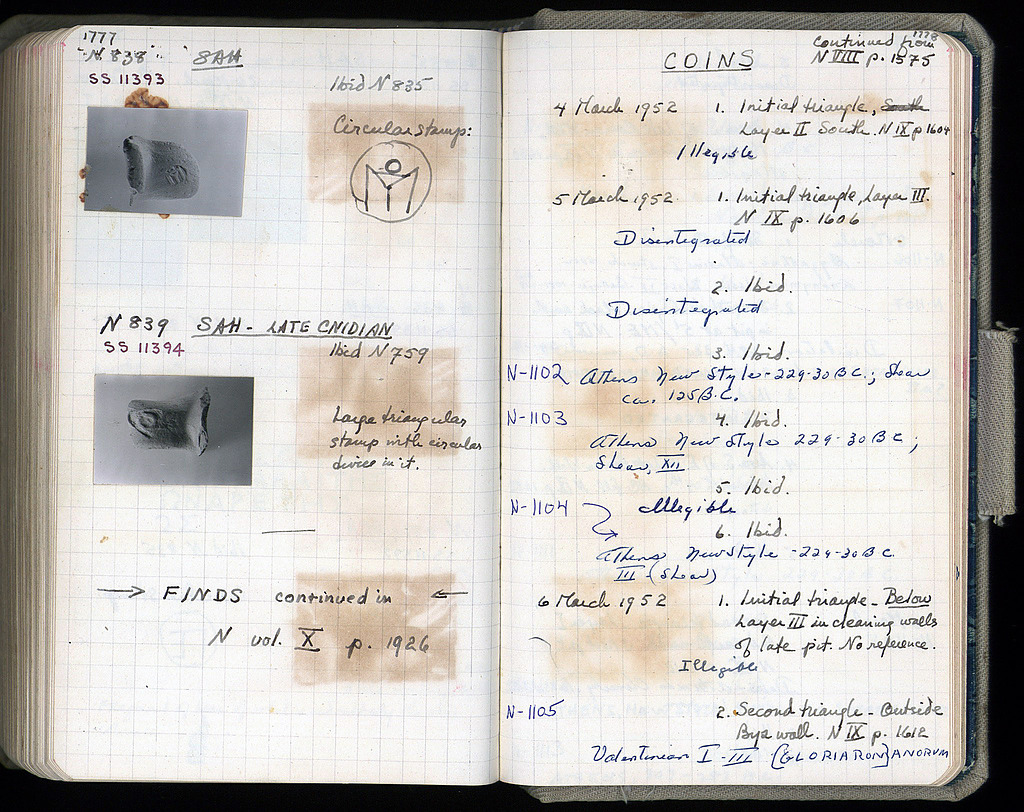 1777
N 838 SAH
SS 11393
Ibid N 835
Circular stamp:
N 839 SAH - LATE CNIDIAN
SS 11394
Ibid N 759
Large triangular
stamp with circular
device in it.
→ FINDS continued in ←
N vol. X p. 1926
1778
Continued from
N VIII p. 1575
COINS
4 March 1952 1. Initial triangle, South
Layer II South. N IX p 1604
Illegible
5 March 1952 1. Initial triangle, Layer III.
N IX p. 1606
Disentegrated
2. Ibid.
Disentegrated
3. Ibid.
N-1102 Athens New Style - 229-30 B.C.; Shear
ca. 125 B.C.
N-1103 4. Ibid.
Athens New Style 229-30 BC;
Shear, XII
5. Ibid.
N-1104 Illegible
6. Ibid.
Athens New Style - 229-30 BC
III - (Shear)
6 March 1952 1. Initial triangle - Below
Layer III in cleaning walls
of late pit. No reference.
Illegible
N-1105 2. Second triangle - Outside
Byz wall. N IX p. 1612
Valentinian I - III [GLORIARON]ANORVM